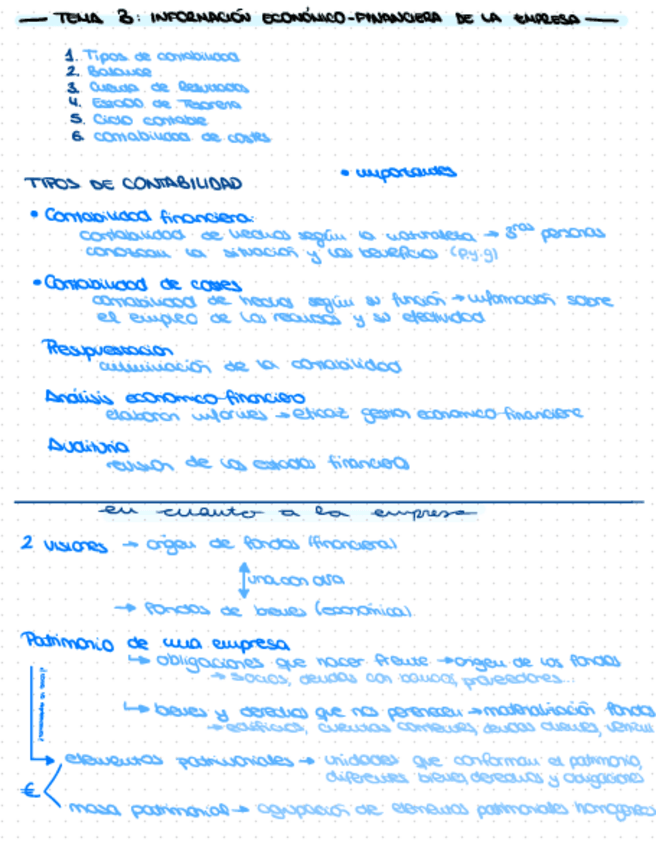 TEMA 3: INFORMACIÓN ECONÓMICO-FINANCIERA DE LA EMPRESA
1. Tipos de contabilidad
2. Balance
3. Cuenta de Resultados
4. Estado de Tesorería
5. Ciclo contable
6. contabilidad de costes
• importantes
TIPOS DE CONTABILIDAD
• Contabilidad financiera:
contabilidad de hechos según la naturaleza → 3ras personas
conozcan la situación y los beneficios (p.y.g)
• Contabilidad de costes
contabilidad de hechos según su función → información sobre
el empleo de los recursos y su efectividad
Presupuestación
culminación de la contabilidad
Análisis económico-financiero
elaboran informes → eficaz gestión económico-financiera
Auditoría
revisión de los estados financieros
en cuanto a la empresa
2 visiones → origen de fondos (financiera)
una con otra
→ fondos de bienes (económica).
Patrimonio de una empresa
↳ obligaciones que hacer frente → origen de los fondos
→ socios, deudas con bancos, proveedores...
↳ bienes y derechos que nos pertenecen → materialización fondos
→ edificios, cuentas corrientes, deudas clientes,
elementos patrimoniales → unidades que conforman el patrimonio,
diferentes bienes, derechos y obligaciones
€
masa patrimonial → agrupación de elementos patrimoniales homogéneos